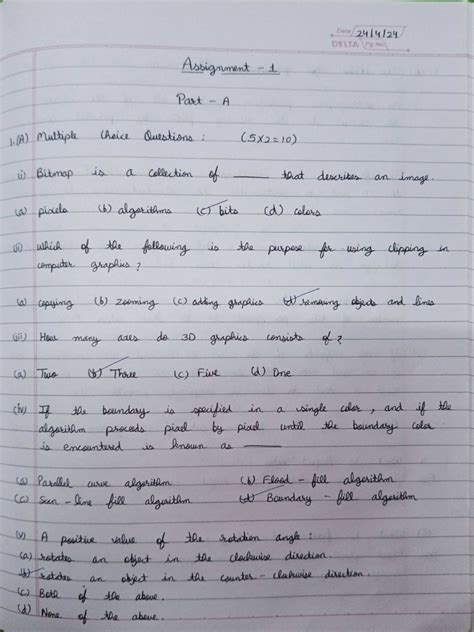 Date 24/4/24
DELTA Pg No.
Assignment - 1
Part - A
1.(A) Multiple Choice Questions : (5x2=10)
(i) Bitmap is a collection of ____ that describes an image.
(a) pixels (b) algorithms (c) bits (d) colors
(ii) which of the following is the purpose for using clipping in
computer graphics ?
(a) copying (b) zooming (c) adding graphics (d) removing objects and lines
(iii) How many axes do 3D graphics consists of ?
(a) Two (b) Three (c) Five (d) One
(iv) If the boundary is specified in a single color , and if the
algorithm proceeds pixel by pixel until the boundary color
is encountered is known as ____
(a) Parallel curve algorithm (b) Flood - fill algorithm
(c) Scan - line fill algorithm (d) Boundary - fill algorithm
(v) A positive value of the rotation angle :
(a) rotates an object in the clockwise direction.
(b) rotates an object in the counter - clockwise direction.
(c) Both of the above.
(d) None of the above.